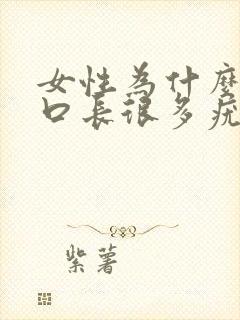 女性為什麼
口長很多疣
紫薯